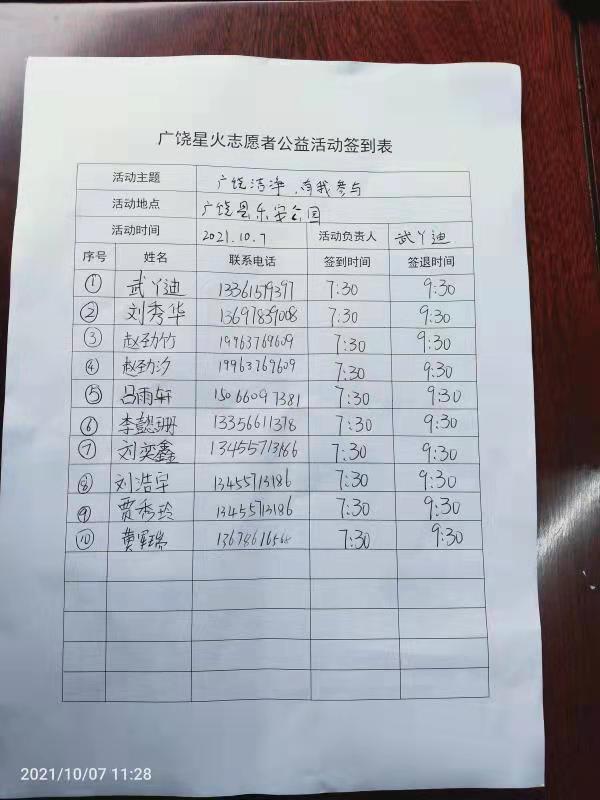 广饶星火志愿者公益活动签到表
活动主题 广饶洁净,有我参与
活动地点 广饶县乐安公园
活动时间 2021.10.7 活动负责人 武丫迪
序号 姓名 联系电话 签到时间 签退时间
① 武丫迪 13361579397 7:30 9:30
② 刘秀华 13697839008 7:30 9:30
③ 赵劲竹 19963769609 7:30 9:30
④ 赵劲汐 19963769609 7:30 9:30
⑤ 吕雨轩 15066097381 7:30 9:30
⑥ 李懿珊 13356611378 7:30 9:30
⑦ 刘奕鑫 13455713186 7:30 9:30
⑧ 刘浩宇 13455713186 7:30 9:30
⑨ 贾秀玲 13455713186 7:30 9:30
⑩ 7:30 9:30
2021/10/07 11:28